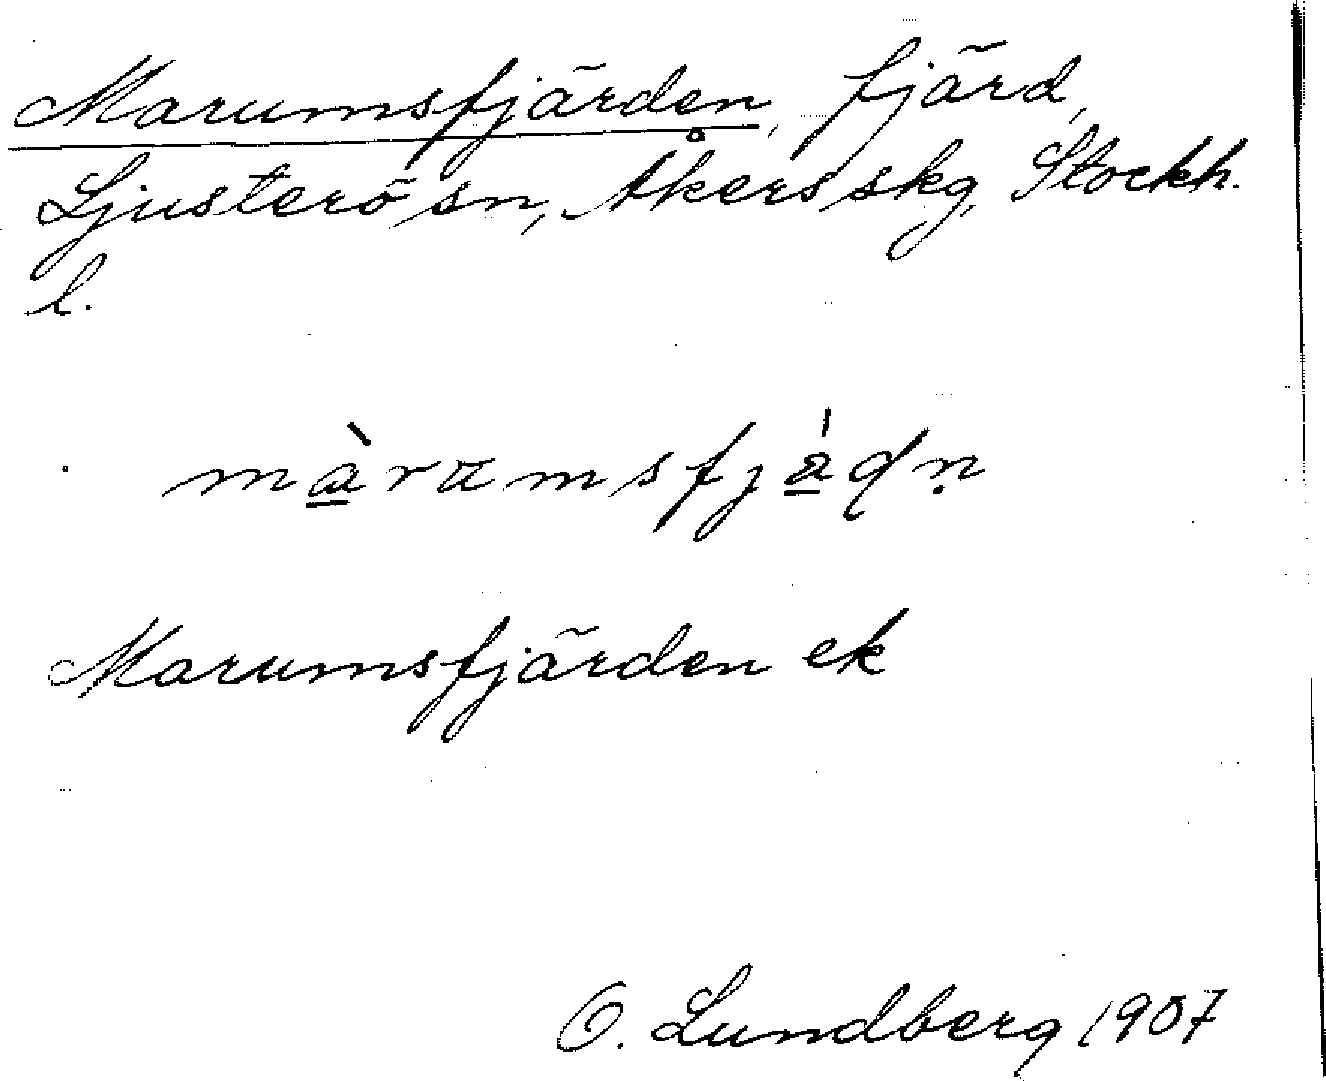 Marumsfjärden, fjärd,
Ljusterö sn, Åkers skg, Stockh.
l.
màramsfjádn
Marumsfjärden ek
O. Lundberg 1907